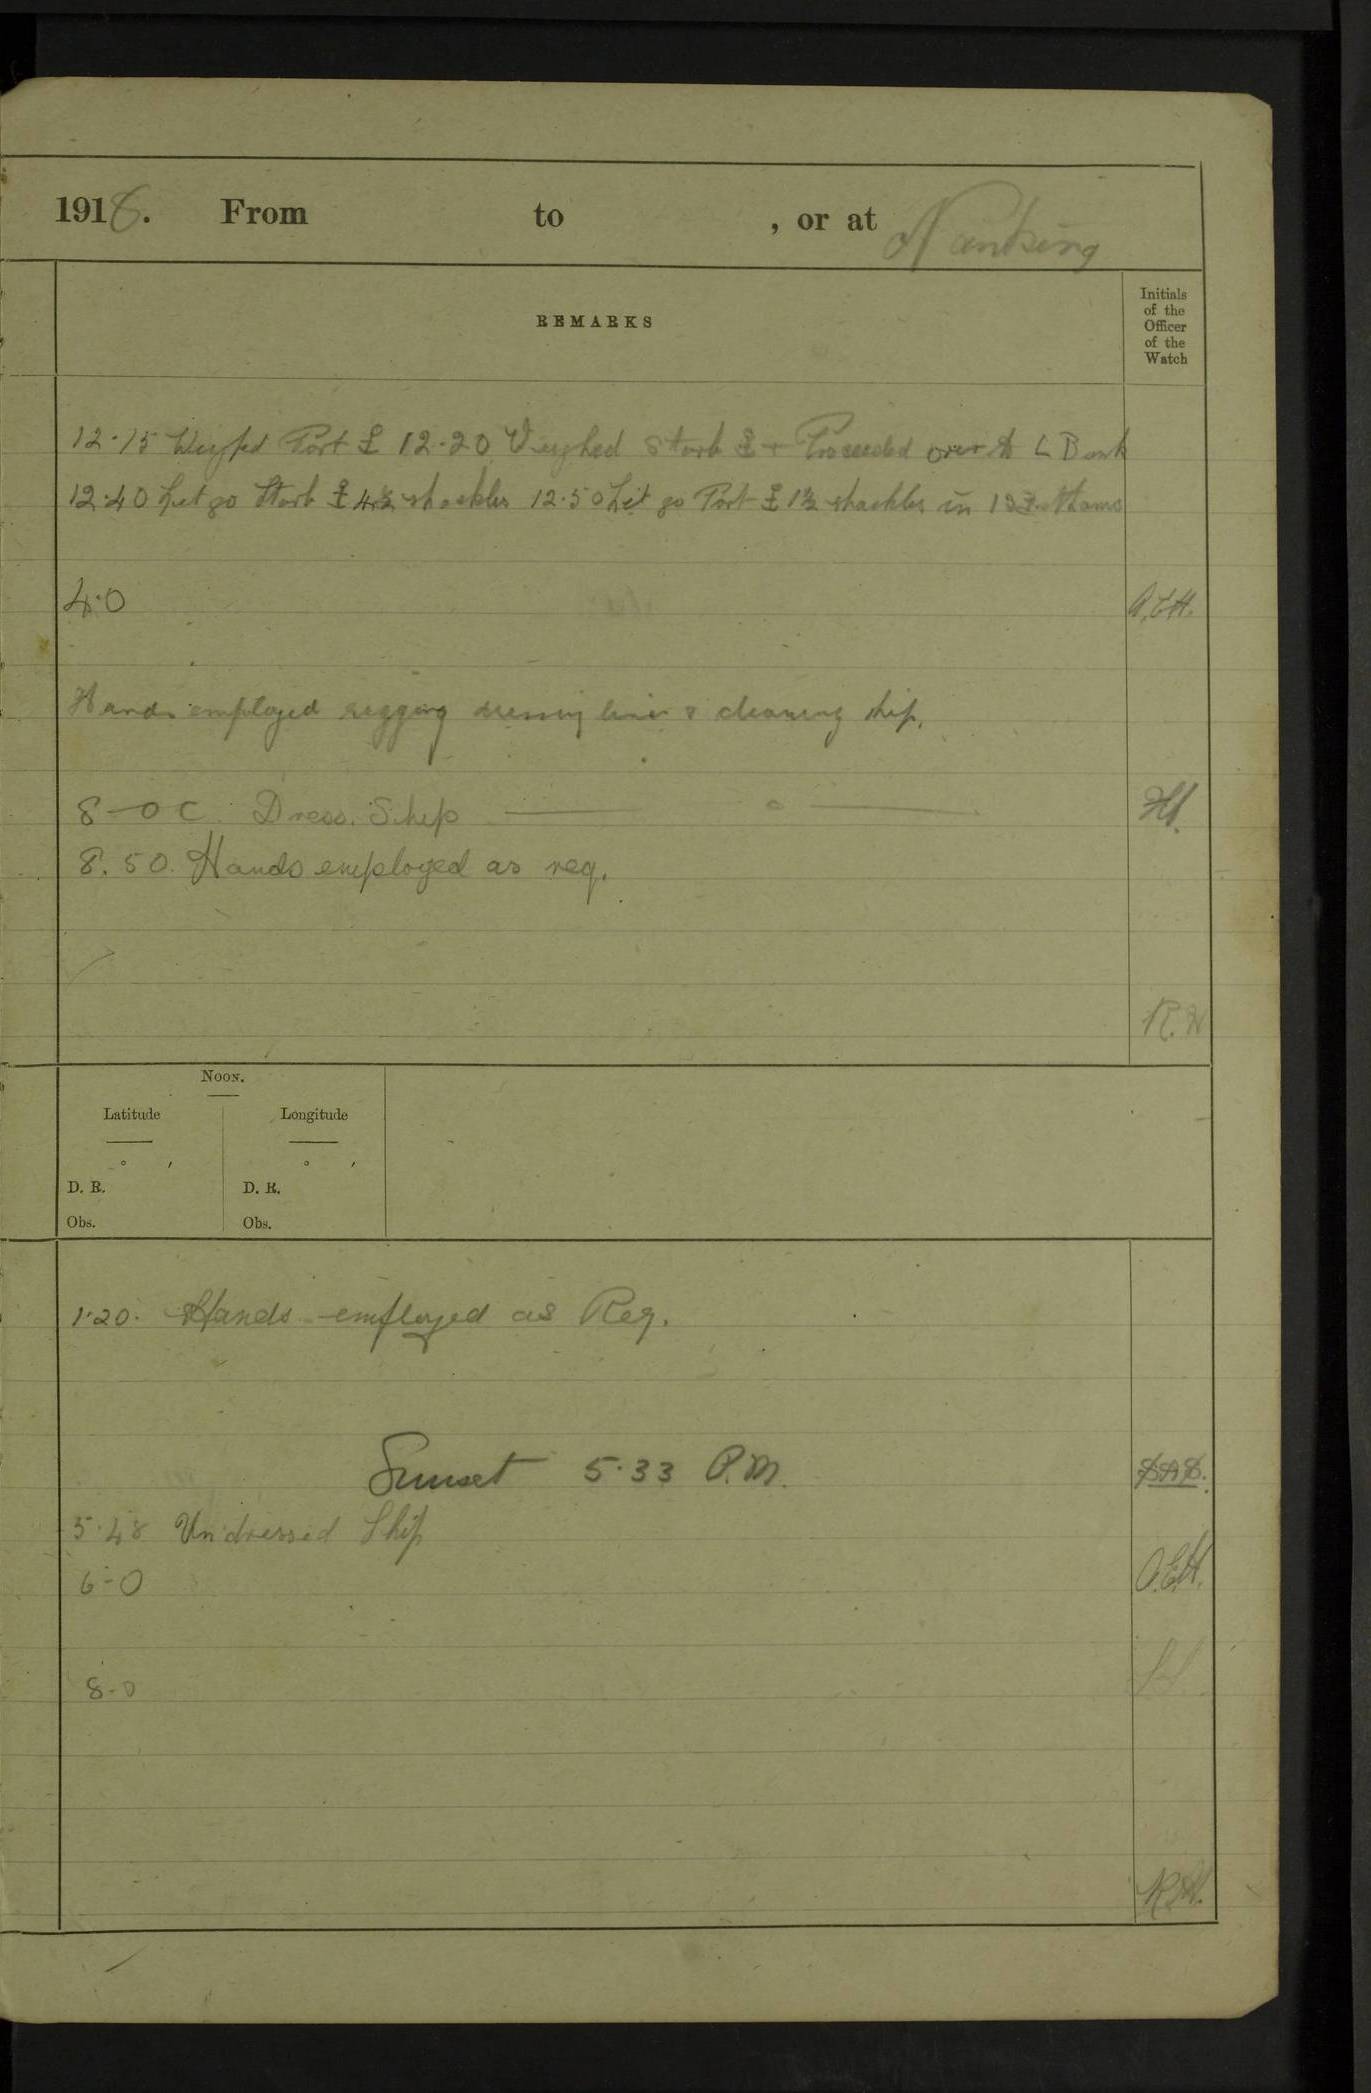 1918. From to , or at Nanking
REMARKS
Initials
of the
Officer
of the
Watch
12.15 Weighed Port ⚓ 12.20 Weighed Starb ⚓ + Proceeded over to L Bank
12.40 Let go Starb ⚓ 4½ shackles 12.50 Let go Port ⚓ 1½ shackles in fathoms
4.0 A.E.H.
Hands employed rigging dressing lines & cleaning ship.
8-0 Dress Ship
8.50. Hands employed as req.
R.H
Noon.
Latitude Longitude
° ′ ° ′
D. R. D. R.
Obs. Obs.
1.20. Hands employed as Req.
Sunset 5.33 P.M.
5.48 Undressed Ship
6-0
8-0